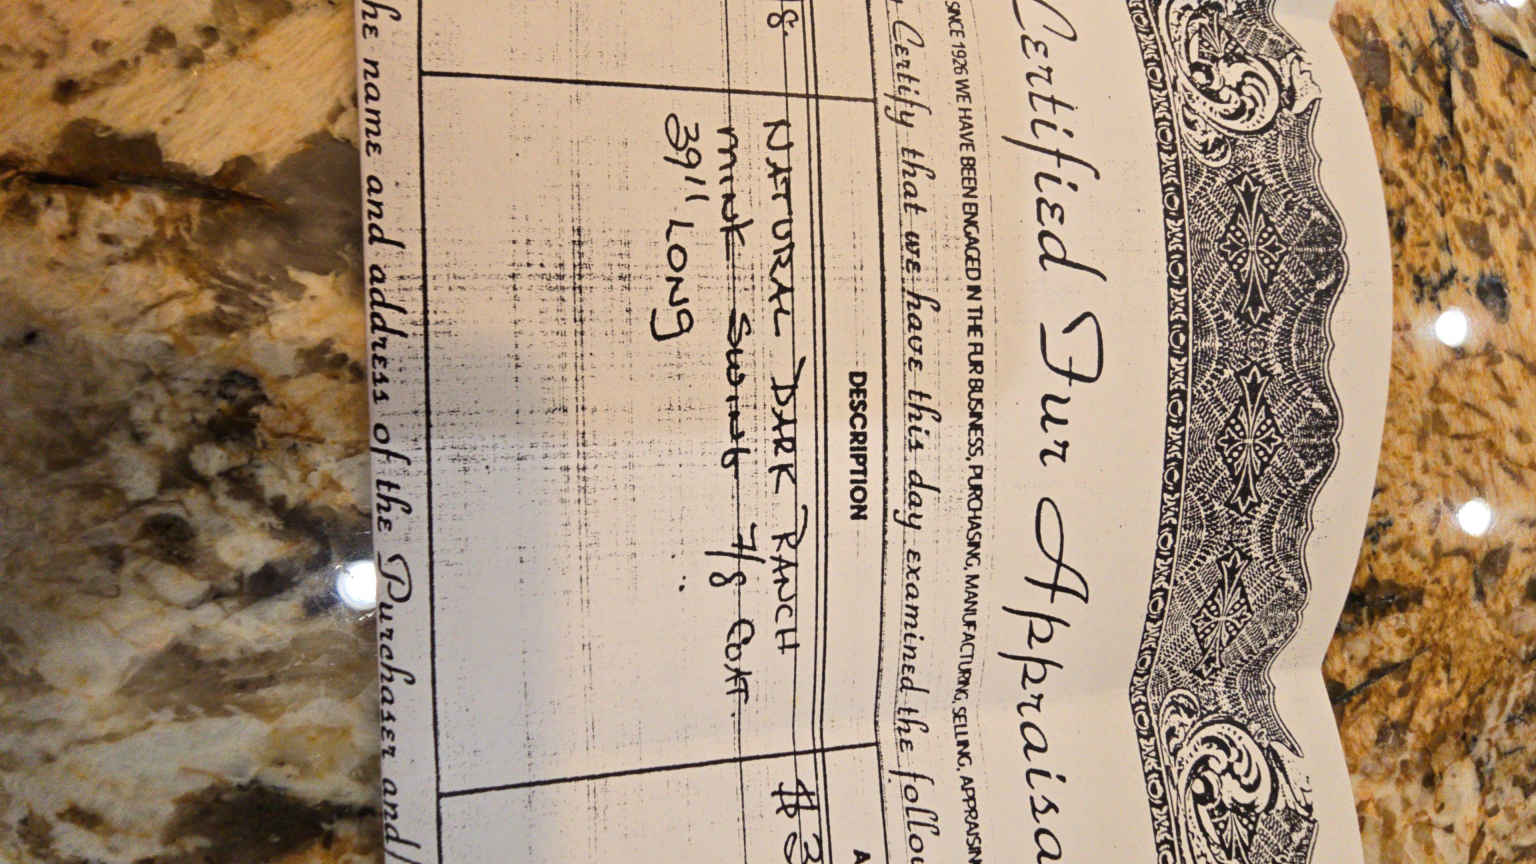 Certified Fur Appraisa
SINCE 1926 WE HAVE BEEN ENGAGED IN THE FUR BUSINESS, PURCHASING, MANUFACTURING, SELLING, APPRAISIN
Certify that we have this day examined the follo
DESCRIPTION A
8. NATURAL DARK RANCH $3
MINK SWING 7/8 COAT.
39" LONG
he name and address of the Purchaser and/